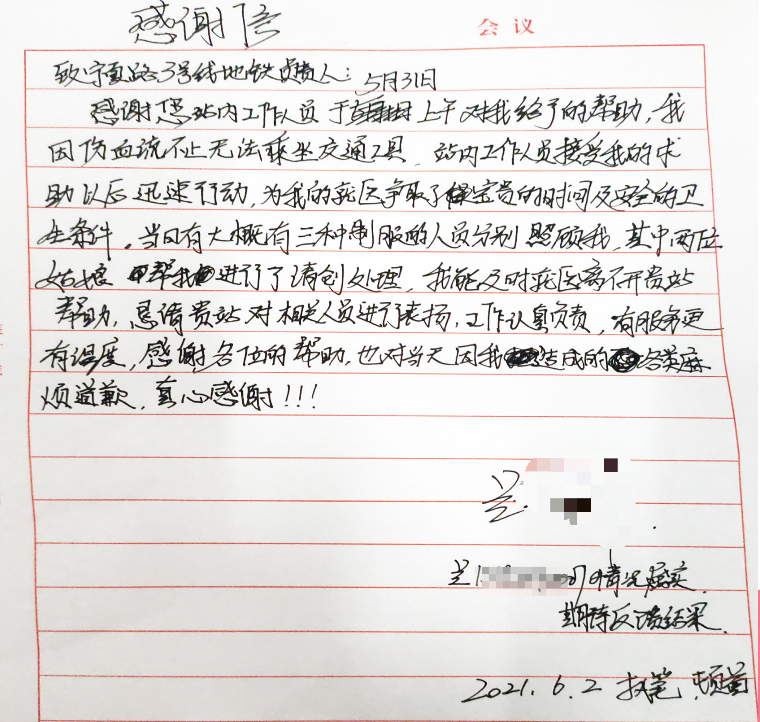 感谢信
会议
致宁夏路3号线地铁负责人:
5月31日
感谢您站内工作人员于上午对我给予的帮助,我
因伤血流不止无法乘坐交通工具,站内工作人员接受我的求
助以后迅速行动,为我的就医争取了宝贵的时间及安全的卫
生条件。当日有大概有三种制服的人员分别照顾我,其中两位
姑娘帮我进行了清创处理,我能及时就医离不开贵站
帮助,恳请贵站对相关人员进行表扬,工作认真负责,有服务更
有温度,感谢各位的帮助,也对当天因我造成的各类麻
烦道歉,真心感谢!!!
兰
兰1 情况属实
期待反馈结果
2021.6.2 执笔 顿首